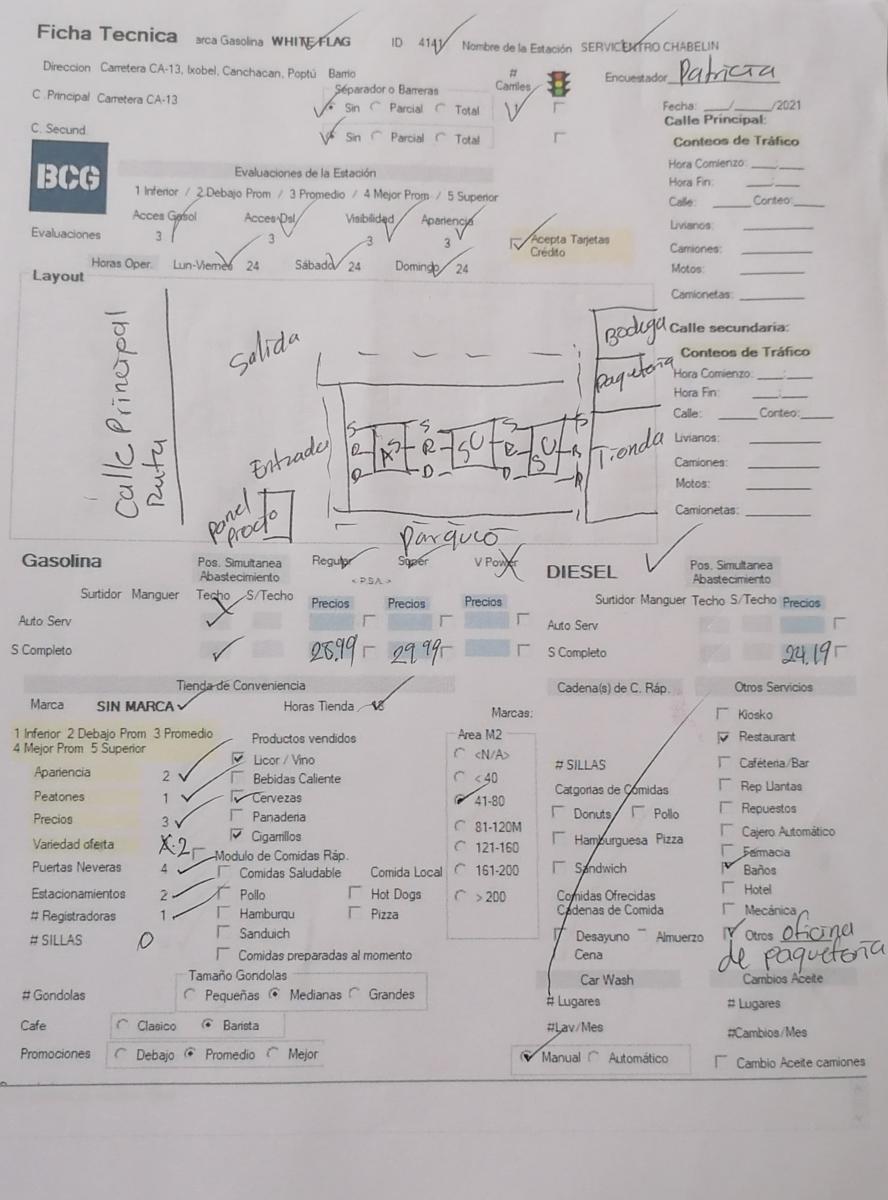 Ficha Tecnica arca Gasolina WHITE FLAG ID 4141 Nombre de la Estación SERVICENTRO CHABELIN
Direccion Carretera CA-13, Ixobel, Canchacan, Poptú Barrio
# Carriles
Encuestador Patricia
C .Principal Carretera CA-13
Séparador o Barreras
Sin Parcial Total
Fecha: ___/___/2021
C. Secund.
Sin Parcial Total
Calle Principal:
Conteos de Tráfico
BCG
Evaluaciones de la Estación
1 Inferior / 2 Debajo Prom / 3 Promedio / 4 Mejor Prom / 5 Superior
Hora Comienzo: ___:___
Hora Fin: ___:___
Calle: ___ Conteo:___
Livianos:
Camiones:
Motos:
Camionetas:
Acces Gasol Acces Dsl Visibilidad Apariencia
Evaluaciones 3 3 3 3
Acepta Tarjetas Crédito
Horas Oper. Lun-Viernes 24 Sábado 24 Domingo 24
Layout
Calle Principal
Ruta
Salida
Entrada
Panel
Precto
Parqueo
Bodega
Paquetería
Tienda
S S S S
R AS R SU R SU R
D D D
Calle secundaria:
Conteos de Tráfico
Hora Comienzo: ___:___
Hora Fin: ___:___
Calle: ___ Conteo:___
Livianos:
Camiones:
Motos:
Camionetas:
Gasolina
Pos. Simultanea Abastecimiento
Regular Super V Power
< P.S.A. >
Surtidor Manguer Techo S/Techo Precios Precios Precios
Auto Serv
S Completo 28.99 29.99
DIESEL
Pos. Simultanea Abastecimiento
Surtidor Manguer Techo S/Techo Precios
Auto Serv
S Completo 24.19
Tienda de Conveniencia
Marca SIN MARCA Horas Tienda
1 Inferior 2 Debajo Prom 3 Promedio
4 Mejor Prom 5 Superior
Apariencia 2
Peatones 1
Precios 3
Variedad oferta X.2
Puertas Neveras 4
Estacionamientos 2
# Registradoras 1
# SILLAS 0
Productos vendidos
Licor / Vino
Bebidas Caliente
Cervezas
Panaderia
Cigarrillos
Modulo de Comidas Ráp.
Comidas Saludable Comida Local
Pollo Hot Dogs
Hamburqu Pizza
Sanduich
Comidas preparadas al momento
Marcas:
Area M2
<N/A>
< 40
41-80
81-120M
121-160
161-200
> 200
# Gondolas
Tamaño Gondolas
Pequeñas Medianas Grandes
Cafe Clasico Barista
Promociones Debajo Promedio Mejor
Cadena(s) de C. Ráp.
# SILLAS
Catgorias de Comidas
Donuts Pollo
Hamburguesa Pizza
Sándwich
Comidas Ofrecidas
Cadenas de Comida
Desayuno Almuerzo
Cena
Car Wash
# Lugares
#Lav/Mes
Manual Automático
Otros Servicios
Kiosko
Restaurant
Caféteria/Bar
Rep Llantas
Repuestos
Cajero Automático
Farmacia
Baños
Hotel
Mecánica
Otros oficina
de paquetería
Cambios Aceite
# Lugares
#Cambios/Mes
Cambio Aceite camiones